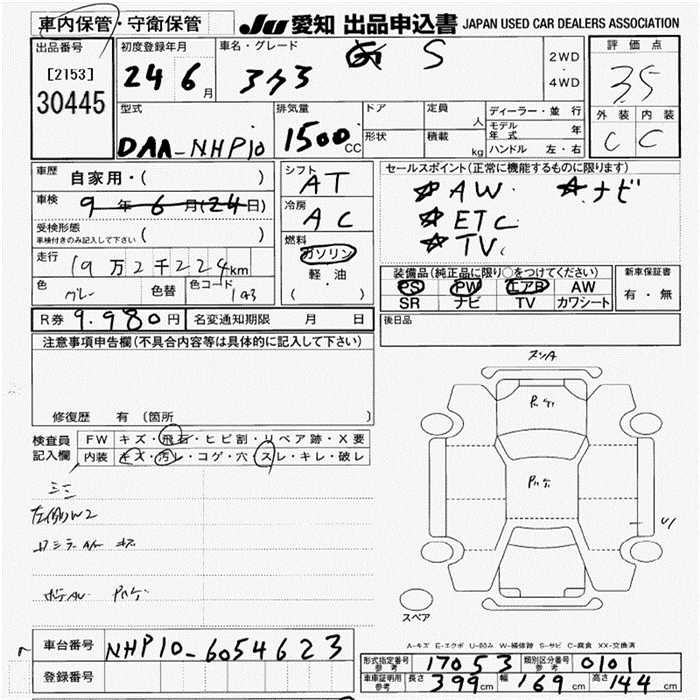 車内保管・守衛保管 JU 愛知 出品申込書 JAPAN USED CAR DEALERS ASSOCIATION
出品番号 初度登録年月 車名・グレード 2WD・4WD 評価点
[2153] 24 6月 S 3.5
30445
外装 内装
C C
型式 排気量 ドア 定員 人 ディーラー・並行
DAA-NHP10 1500cc 形状 積載 kg モデル年式 年
ハンドル 左・右
車歴 自家用・( ) シフト AT セールスポイント(正常に機能するものに限ります)
車検 9年6月(24日) 冷房 AC ☆AW ☆ナビ
受検形態 ( ) ☆ETC
車検付きのみ記入して下さい 燃料 ☆TV
走行 19万2千224km ガソリン
軽・油
( ・ )
装備品(純正品に限り○をつけてください) 新車保証書
色 グレー 色替 色コード PS PW エアB AW 有・無
SR ナビ TV カワシート
R券 9.980円 名変通知期限 月 日 後日品
注意事項申告欄(不具合内容等は具体的に記入して下さい)
修復歴 有 (箇所 )
検査員記入欄 FW キズ・飛石・ヒビ割・リペア跡・X要
内装 キズ・汚レ・コゲ・穴・スレ・キレ・破レ
左側W2
スペア
A-キズ E-エクボ U-凹み W-補修跡 S-サビ C-腐食 XX-交換済
車台番号 NHP10-6054623
登録番号
形式指定番号 参考 17053 類別区分番号 参考 0101
車車証明用 参考 長さ 399cm 幅 169cm 高さ 144cm